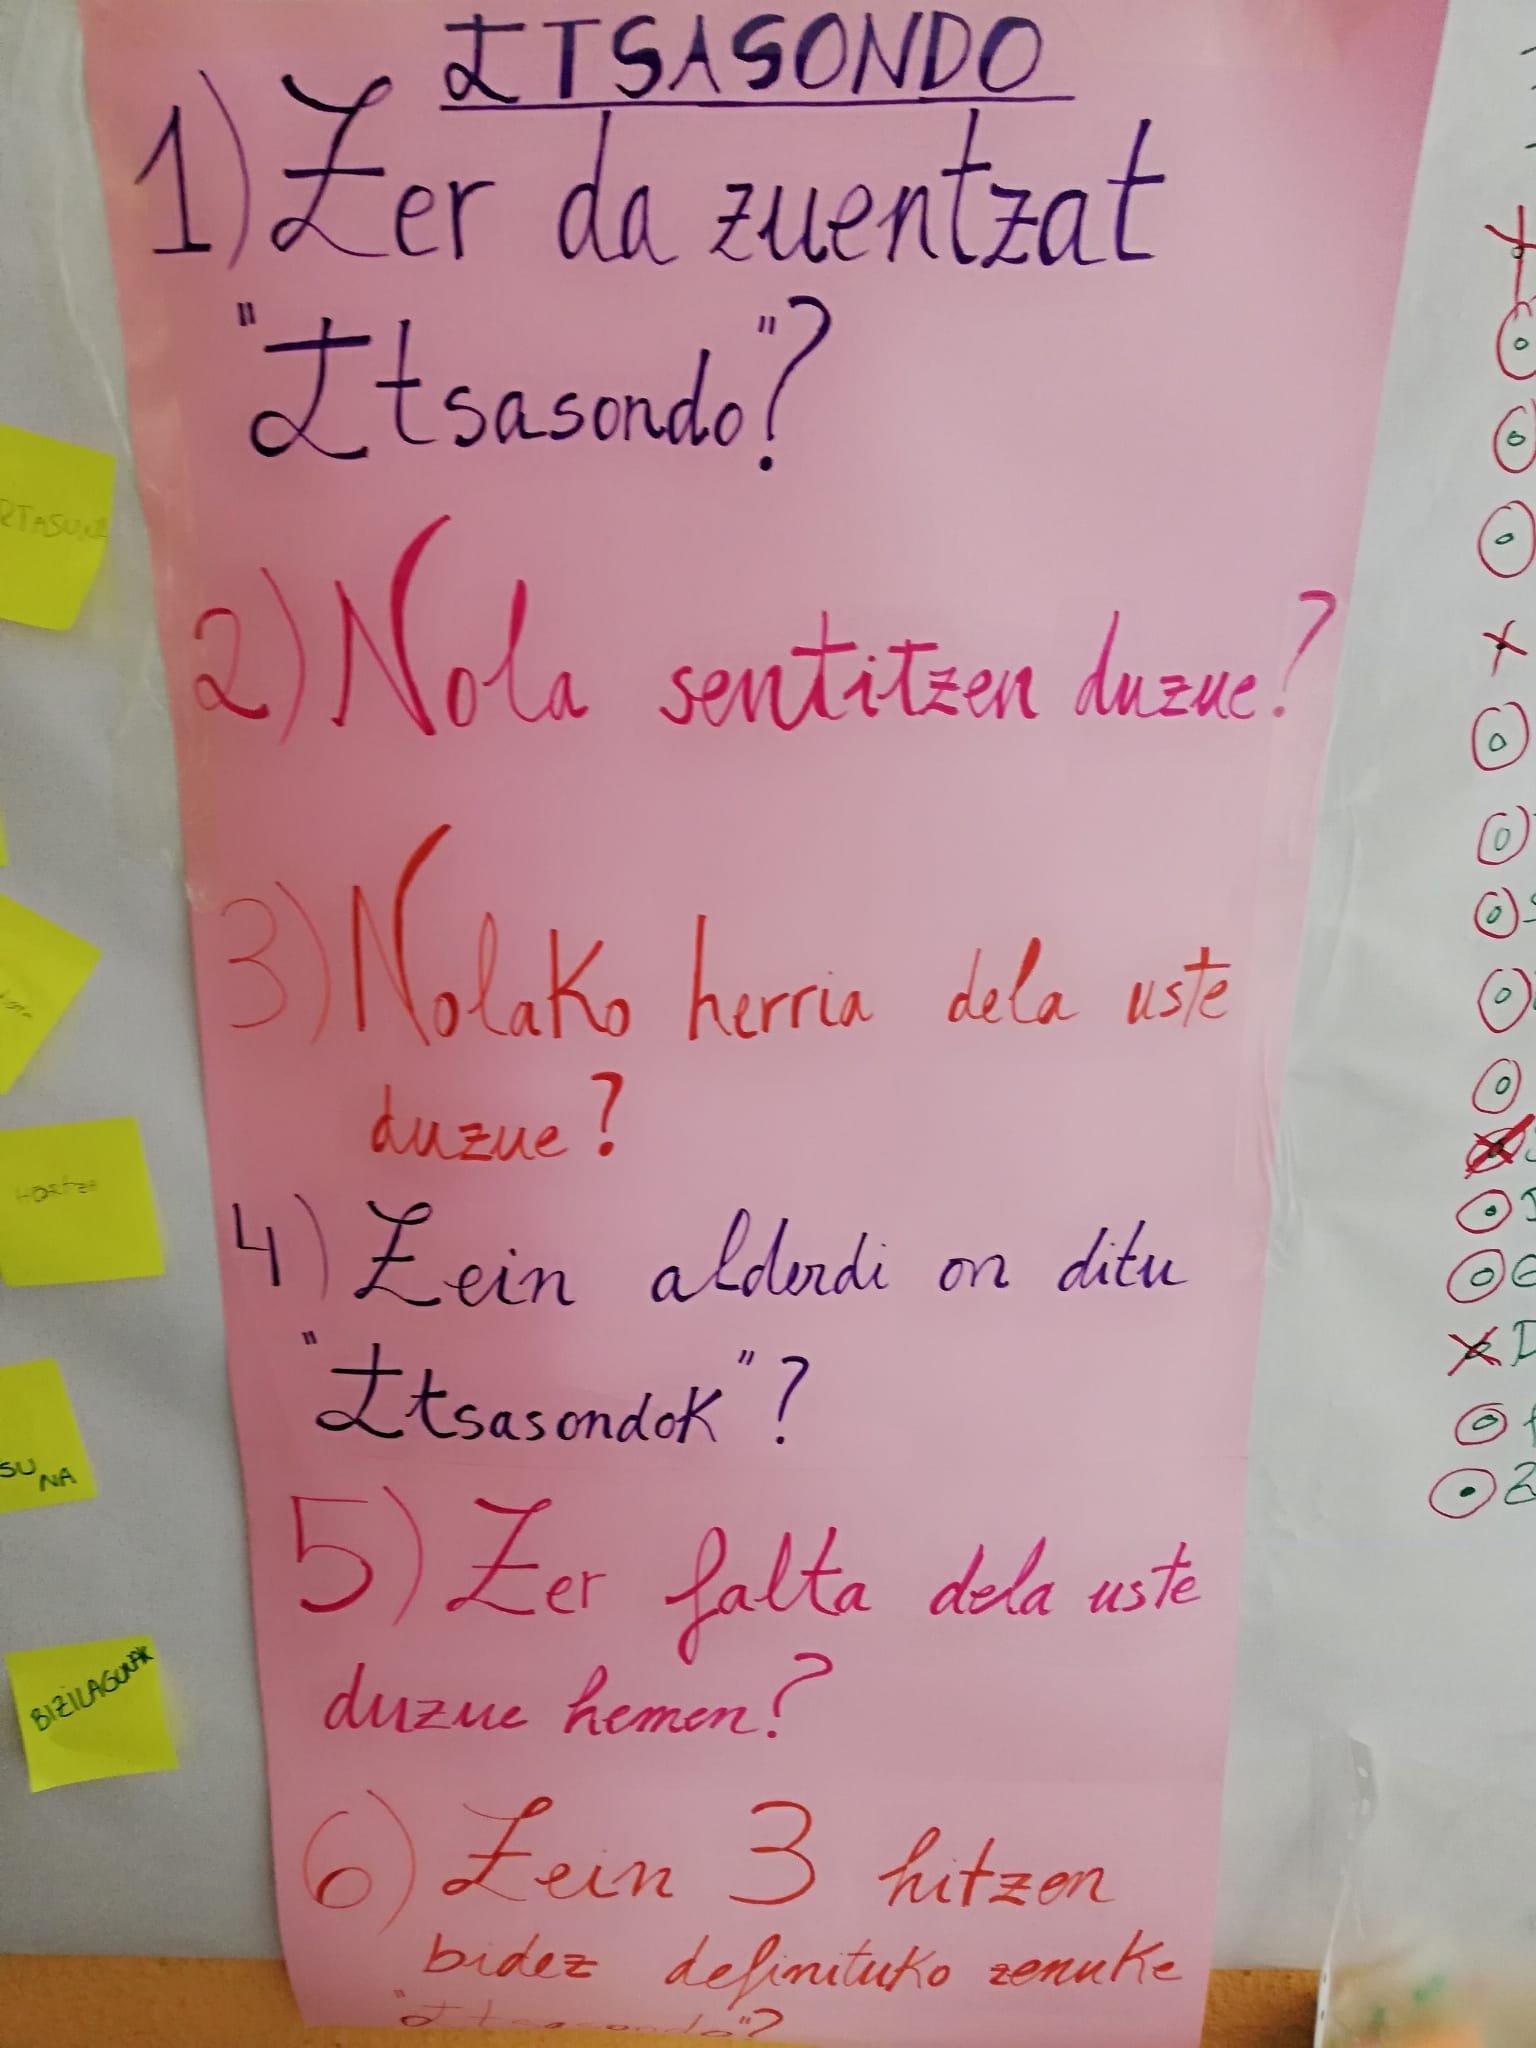 ITSASONDO
1) Zer da zuentzat
"Itsasondo"?
2) Nola sentitzen duzue?
3) Nolako herria dela uste
duzue?
4) Zein alderdi on ditu
"Itsasondok"?
5) Zer falta dela uste
duzue hemen?
6) Zein 3 hitzen
bidez definituko zenuke
"Itsasondo"?
RTASUNA
SU
NA
BIZILAGUNAK